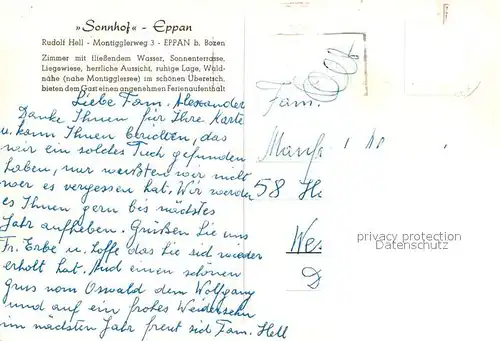 »Sonnhof« - Eppan
Rudolf Hell - Montigglerweg 3 - EPPAN b. Bozen
Zimmer mit fließendem Wasser, Sonnenterrasse,
Liegewiese, herrliche Aussicht, ruhige Lage, Wald-
nähe (nahe Montigglersee) im schönen Überetsch,
bieten dem Gast einen angenehmen Ferienaufenthalt
Liebe Fam. Alexander
Danke Ihnen für Ihre Karte
u. kann Ihnen berichten, das
wir ein solches Tuch gefunden
haben, nur wußten wir nicht
wer es vergessen hat. Wir werden
es Ihnen gern bis nächstes
Jahr aufheben. Grüßen Sie uns
Fr. Erbe u. hoffe das Sie sich wieder
erholt hat. Und einen schönen
Gruss vom Oswald dem Wolfgang
und auf ein frohes Wiedersehn
im nächsten Jahr freut sich Fam. Hell
Fam.
58 He
Wes
D
privacy protection
Datenschutz